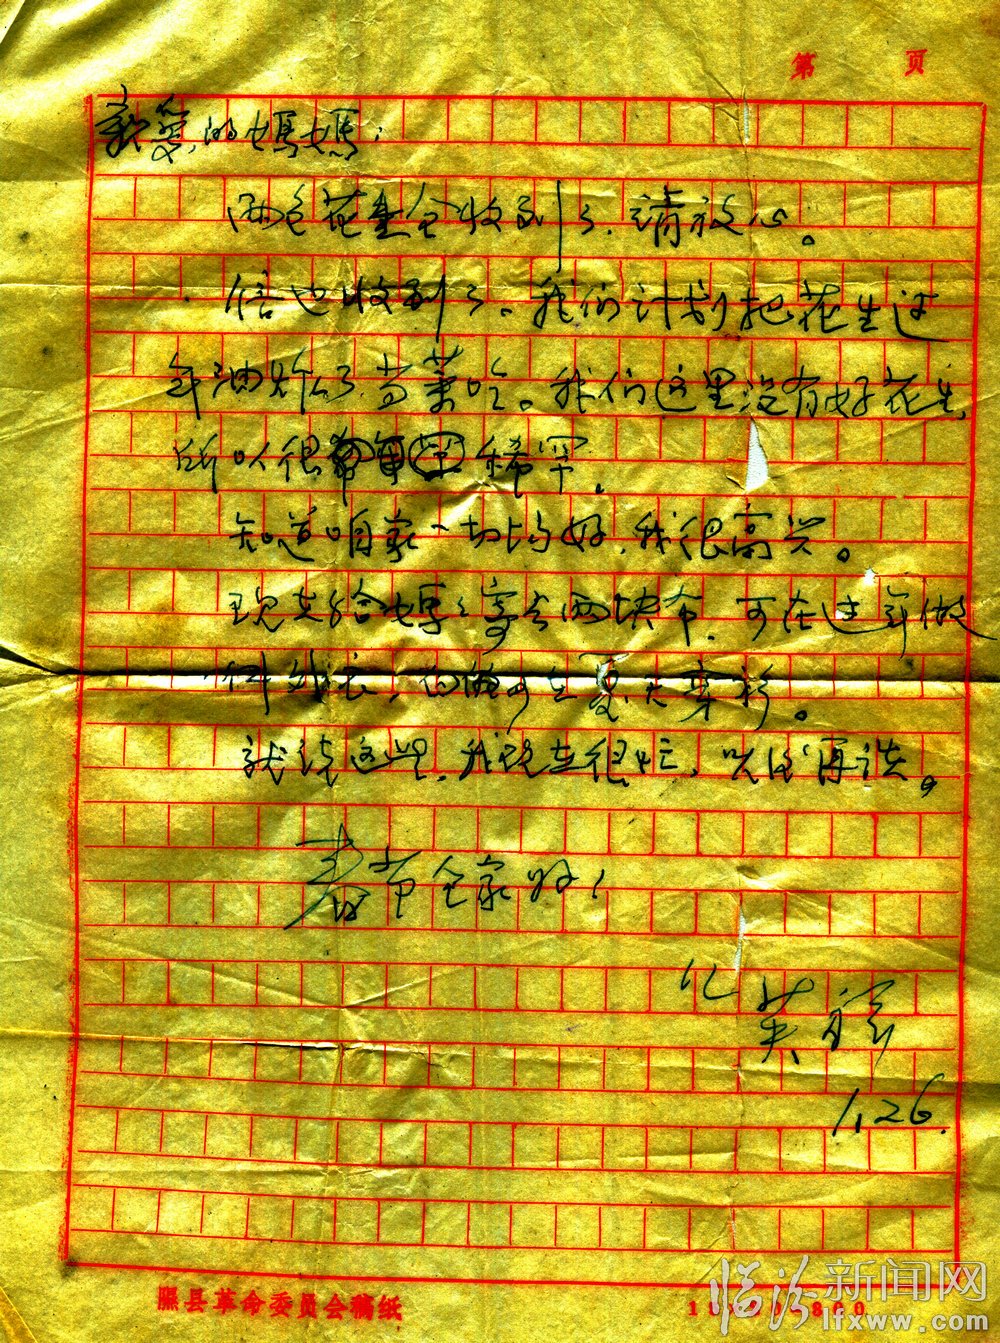 第 页
亲爱的妈妈：
两包花生全收到了，请放心。
信也收到了。我们计划把花生过
年油炸了当菜吃。我们这里没有好花生，
所以很 稀罕。
知道咱家一切均好，我很高兴。
现先给妈妈寄去两块布，可在过年做
件外衣，白的可在夏天穿衫。
就谈这些，我现在很忙，以后再谈。
春节全家好！
儿
1.26.
县革命委员会稿纸
临汾新闻网
lfxww.com